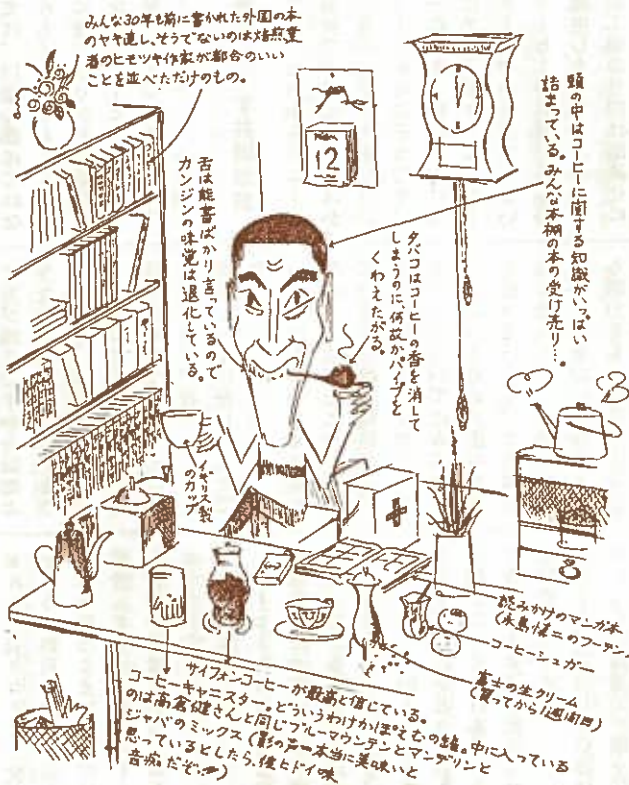 みんな30年も前に書かれた外国の本
のヤキ直し、そうでないのは焙煎業
者のヒモツキ作家が都合のいい
ことを並べただけのもの。
12
頭の中はコーヒーに関する知識がいっぱい
詰まっている。みんな本棚の本の受け売り…。
タバコはコーヒーの香を消して
しまうのに、何故かパイプを
くわえたがる。
舌は能書ばかり言っているので
カンジンの味覚は退化している。
イギリス製
のカップ
読みかけのマンガ本
(永島慎二のフーテン)
コーヒーシュガー
富士の生クリーム
(買ってから1週間目)
サイフォンコーヒーが最高と信じている。
コーヒーキャニスター。どういうわけかほえむの缶。中に入っている
のは高倉健さんと同じブルーマウンテンとマンデリンと
ジャバのミックス(影の声…本当に美味いと
思っているとしたら、俺ヒドイ味
音痴だぞ…)